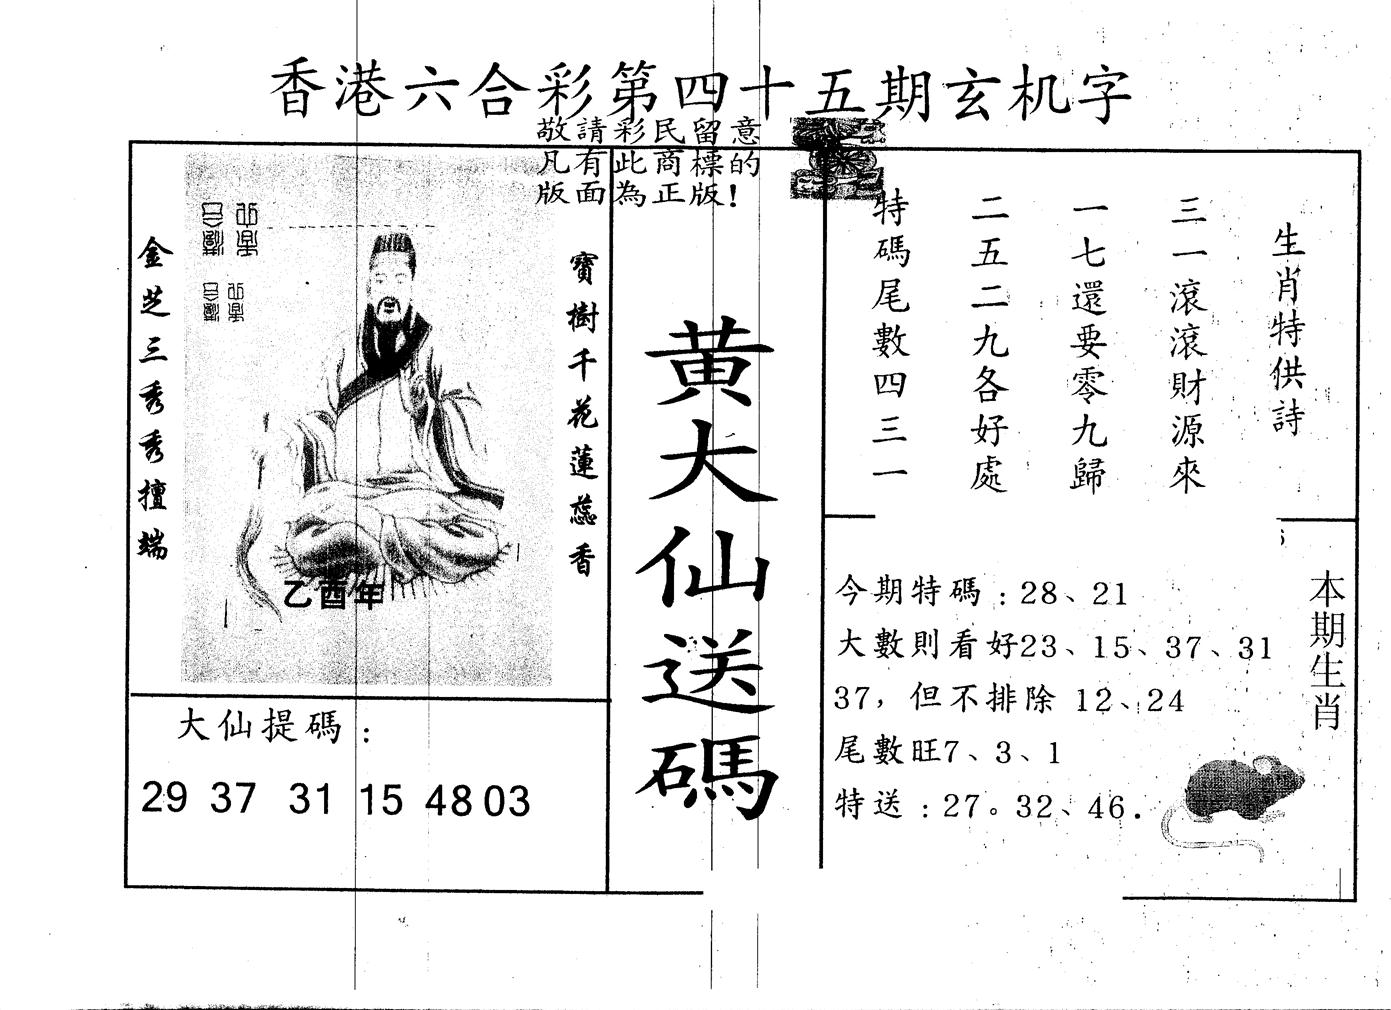 香港六合彩第四十五期玄机字
敬請彩民留意
凡有此商標的
版面為正版!
金芝三秀秀擅端
寶樹千花蓮蕊香
乙酉年
大仙提碼:
29 37 31 15 48 03
黄大仙送碼
生肖特供詩
三一滾滾財源來
一七還要零九歸
二五二九各好處
特碼尾數四三一
本期生肖
今期特碼:28、21
大數則看好23、15、37、31
37，但不排除 12、24
尾數旺7、3、1
特送:27。32、46.